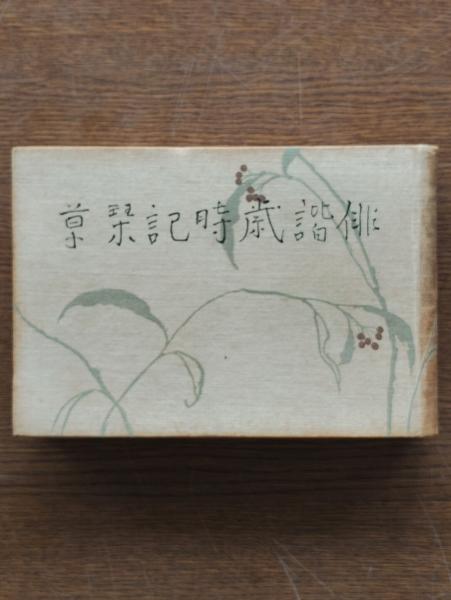 俳諧歳時記栞草